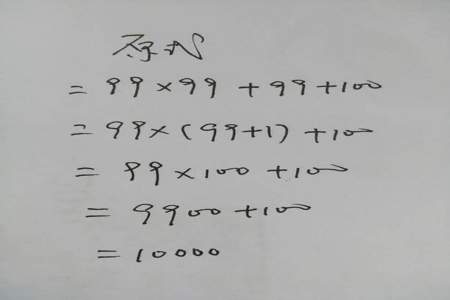 原式
= 99×99+99+100
= 99×(99+1)+100
= 99×100+100
= 9900+100
= 10000